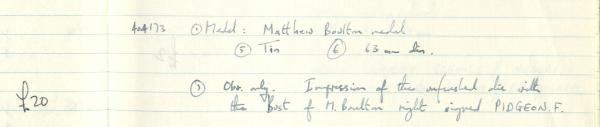 404173 ① Medal: Matthew Boulton medal
⑤ Tin ⑥ 63 mm dia.
③ Obv. only. Impression of the unfinished die with
£20
the bust of M. Boulton right signed PIDGEON. F.